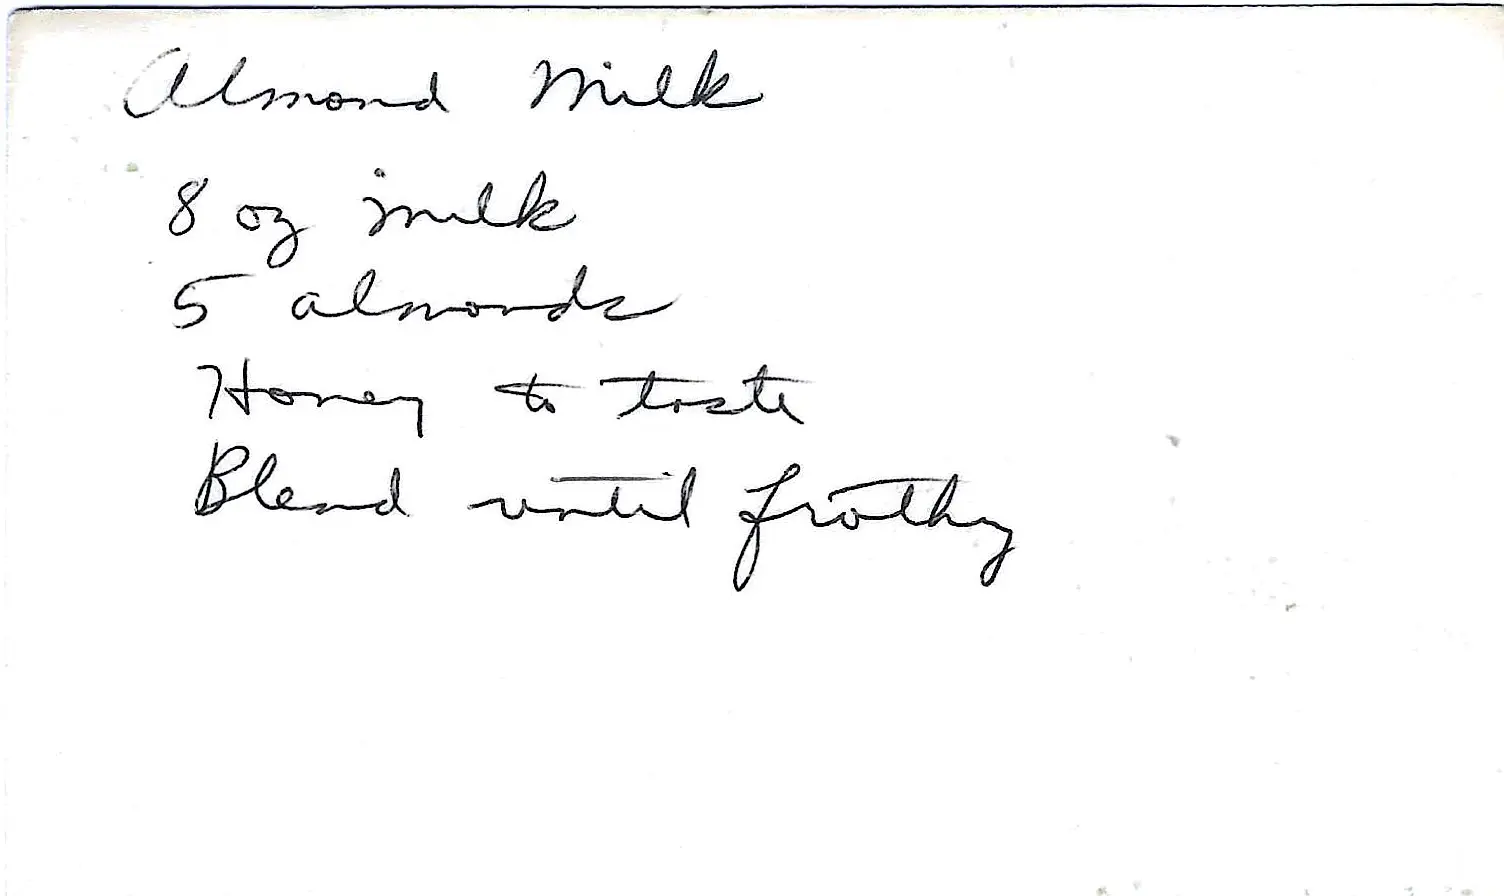 Almond Milk
8 oz milk
5 almonds
Honey to taste
Blend until frothy